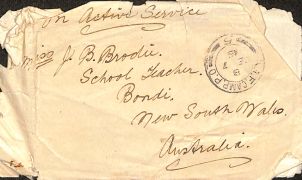 On Active Service
Miss J. B. Brodie.
School Teacher.
Bondi.
New South Wales.
Australia.